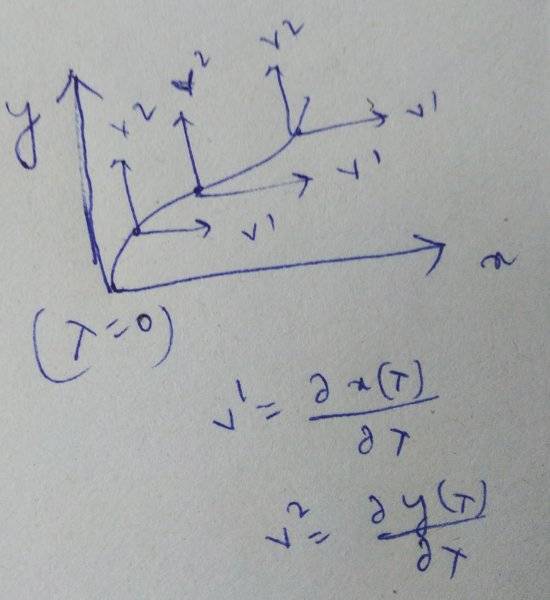 y
v²
v²
v²
v¹
v¹
v¹
x
(T=0)
v¹ = ∂x(T)/∂T
v² = ∂y(T)/∂T